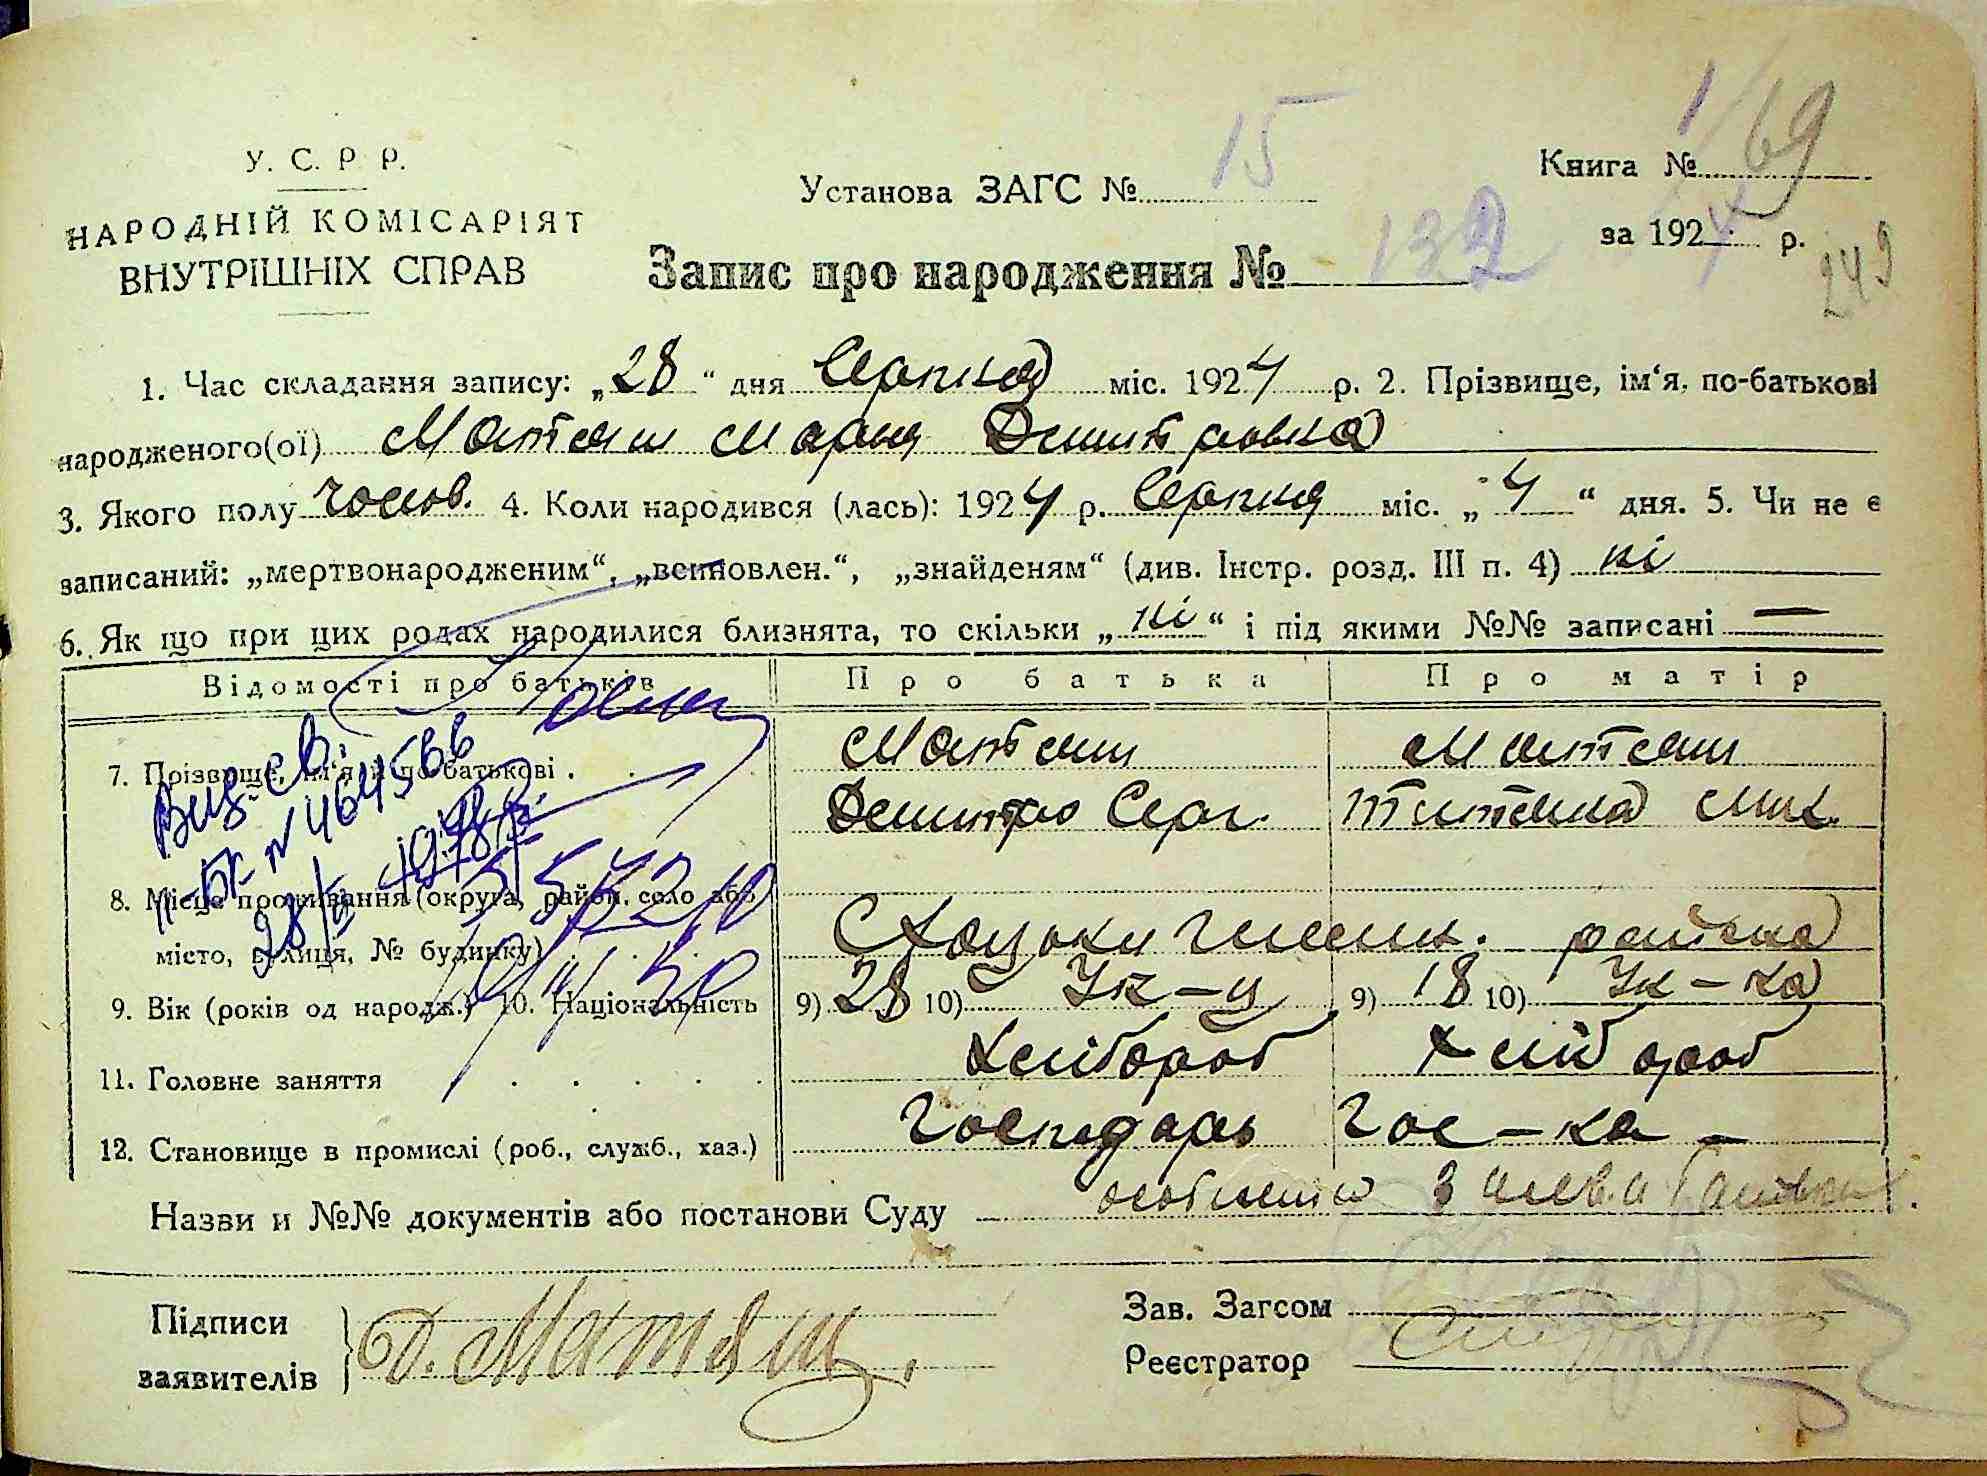 У. С. Р. Р.
НАРОДНІЙ КОМІСАРІЯТ
ВНУТРІШНІХ СПРАВ
Установа ЗАГС № 15
Книга № 1/69
за 1924 р.
249
Запис про народження № 132
1. Час складання запису: „28“ дня Серпня міс. 1924 р. 2. Прізвище, ім‘я, по-батькові
народженого(ої) Матяш Мария Дмитровна
3. Якого полу 4. Коли народився (лась): 1924 р. Серпня міс. „4“ дня. 5. Чи не є
записаний: „мертвонародженим“, „всиновлен.“, „знайденям“ (див. Інстр. розд. III п. 4) ні
6. Як що при цих родах народилися близнята, то скільки „ні“ і під якими №№ записані —
Відомості про батьків Про батька Про матір
7. Прізвище, ім‘я й по батькові . Матяш Матяш
Дмитро Серг. Тетяна Мих.
Вид. св.
№ 464566
1978р.
8. Місце проживання (округа, район, село або
місто, вулиця, № будинку) района
9. Вік (років од народж.) 10. Національність 9) 28 10) Ук-ц 9) 18 10) Ук-ка
11. Головне заняття Хлібороб Хлібороб
12. Становище в промислі (роб., служб., хаз.) Господарь Гос-ка
Назви и №№ документів або постанови Суду
Підписи
заявителів Д. Матяш
Зав. Загсом
Реєстратор